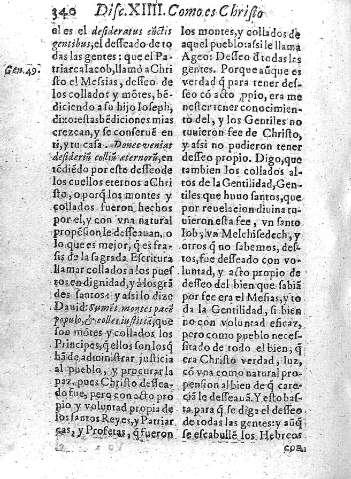 340 Disc. XIIII. Como es Christo
el es el desideratus cũctis
gentibus, el desseado de to
das las gentes: que el Pa-
Gen. 49. triarca Iacob, llamó a Chris
to el Mesias, desseo de los
collados y mõtes, bẽ-
diciendo a su hijo Ioseph,
dixo: estas bẽdiciones mias
crezcan, y se conseruẽ en
ti, y tu casa. Donec veniar
desideriũ colliũ æternorũ, en
tẽdiẽdo por esto desseo de
los cuellos eternos a Chri
sto, o porq̃ los montes y
collados fueron, hechos
por el, y con vna natural
propẽsion le desseauan, o
lo que es mejor, q̃ es fra-
sis de la sagrada Escritura
llamar collados a los pues
tos en dignidad, y á los grã
des santos: y assi lo dize
Dauid: Sumẽt montes pacẽ
populo, & colles iustitiã, que
son mõtes y collados los
Principes, q̃ ellos son los q̃
hã de administrar justicia
al pueblo, y procurar la
paz, pues Christo dessea-
do fue, pero con acto pro
pio y voluntad propia de
los santos Reyes, y Patriar
cas, y Profetas, q̃ fueron
los montes, y collados de
aquel pueblo: assi le llama
Ageo: Desseo d̃ todas las
gentes. Porque aũque es
verdad q̃ para tener des-
seo cõ acto ꝓpio, era me
nester tener conocimien-
to del, y los Gentiles no
tuuieron fee de Christo,
y assi no pudieron tener
desseo propio. Digo, que
tambien los collados al-
tos de la Gentilidad, Gen-
tiles que huuo santos, que
por reuelacion diuina tu-
uieron esta fee, vn santo
Iob, vn Melchisedech, y
otros q̃ no sabemos, des-
tos, fue desseado con vo-
luntad, y acto propio de
desseo del bien que sabiã
por fee era el Mesias, y to
da la Gentilidad, si bien
no con voluntad eficaz,
pero como pueblo neces-
sitado de todo el bien, q̃
era Christo verdad, luz,
cõ vna como natural pro-
pension al bien de q̃ care-
ciã le desseauã. Y esto bas-
ta para q̃ se diga el desseo
de todas las gentes: y aũ q̃
se escabullẽ los Hebreos